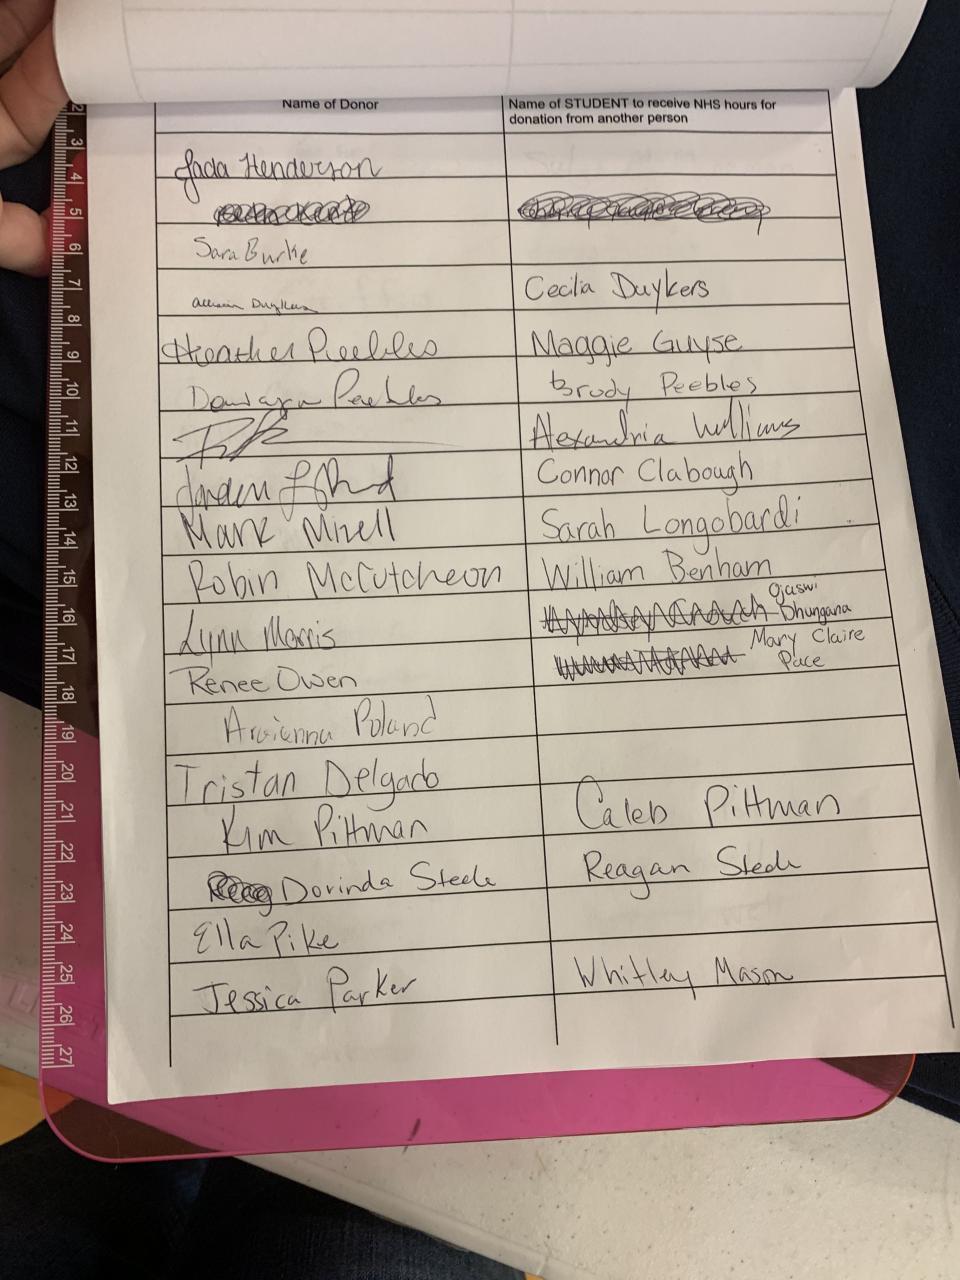 Name of Donor
Name of STUDENT to receive NHS hours for
donation from another person
Jada Henderson
Sara Burke
Allison Duykers Cecilia Duykers
Heather Peebles Maggie Guyse
Peebles Brody Peebles
Alexandria Williams
Jorden Connor Clabough
Mark Mizell Sarah Longobardi
Robin McCutcheon William Benham
Lynn Morris Ojaswi
Dhungana
Renee Owen Mary Claire
Pace
Poland
Tristan Delgado
Kim Pittman Caleb Pittman
Dorinda Steele Reagan Steele
Ella Pike
Jessica Parker Whitley Mason
2
3
4
5
6
7
8
9
10
11
12
13
14
15
16
17
18
19
20
21
22
23
24
25
26
27